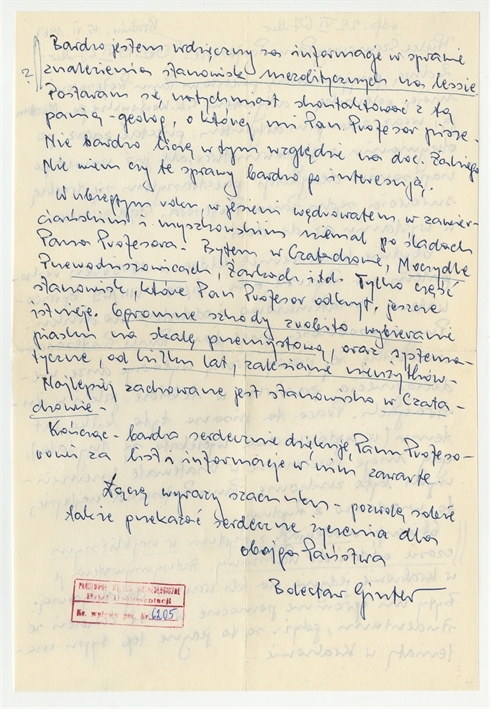 Bardzo jestem wdzięczny za informacje w sprawie
? znalezienia stanowisk mezolitycznych na lessie.
Postaram się natychmiast skontaktować z tą
panią-geolog, o której mi Pan Profesor pisze.
Nie bardzo liczę w tym względzie na doc.
Nie wiem czy te sprawy bardzo go interesują.
W ubiegłym roku, w jesieni wędrowałem w zawier-
ciańskim i myszkowskim niemal po śladach
Pana Profesora. Byłem w Czatachowie, Moczydle
Przewodziszowicach, Żarkach itd. Tylko część
stanowisk, które Pan Profesor odkrył, jeszcze
istnieje. Ogromne szkody zrobiło wybieranie
piasku na skalę przemysłową, oraz systema-
tyczne, od kilku lat, zalesianie nieużytków.
Najlepiej zachowane jest stanowisko w Czata-
chowie.
Kończąc - bardzo serdecznie dziękuję Panu Profeso-
rowi za list i informacje w nim zawarte
Łączę wyrazy szacunku - pozwolę sobie
także przekazać serdeczne życzenia dla
obojga Państwa
Bolesław Ginter
PAŃSTWOWE MUZEUM ARCHEOLOGICZNE
Dział Dokumentacji
Ks. wpływu poz. Nr 6205